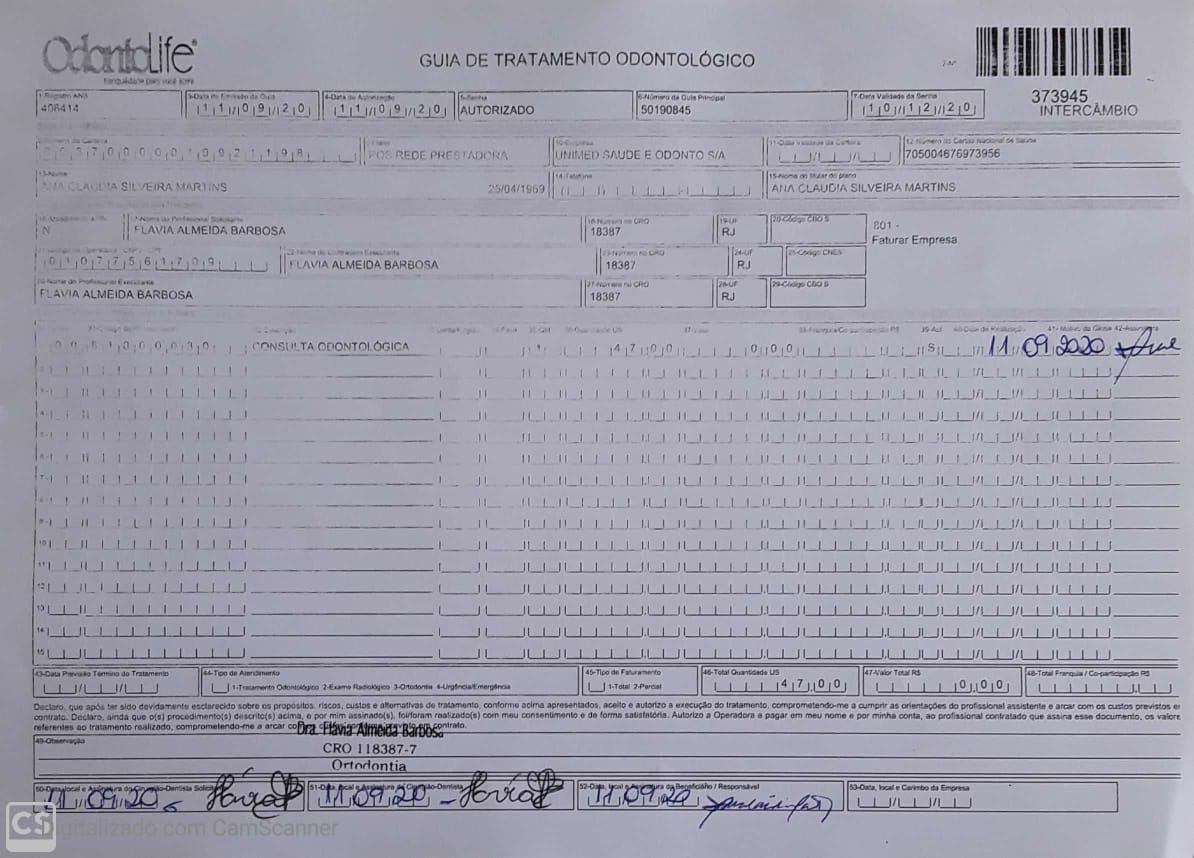 OdontoLife
GUIA DE TRATAMENTO ODONTOLÓGICO
373945
INTERCÂMBIO
1-Registro ANS
406414
3-Data de Emissão da Guia
11/09/20
4-Data de Autorização
11/09/20
5-Senha
AUTORIZADO
6-Número da Guia Principal
50190845
7-Data Validade da Senha
10/12/20
POS REDE PRESTADORA
10-Empresa
UNIMED SAUDE E ODONTO S/A
11-Data Validade da Carteira
12-Número do Cartão Nacional de Saúde
705004676973956
13-Nome
ANA CLAUDIA SILVEIRA MARTINS
25/04/1969
14-Telefone
15-Nome do titular do plano
ANA CLAUDIA SILVEIRA MARTINS
N
17-Nome do Profissional Solicitante
FLAVIA ALMEIDA BARBOSA
18-Número no CRO
18387
19-UF
RJ
20-Código CBO S
801 -
Faturar Empresa
01077561709
22-Nome do Contratado Executante
FLAVIA ALMEIDA BARBOSA
23-Número no CRO
18387
24-UF
RJ
25-Código CNES
26-Nome do Profissional Executante
FLAVIA ALMEIDA BARBOSA
27-Número no CRO
18387
28-UF
RJ
29-Código CBO S
CONSULTA ODONTOLÓGICA
1
47,00
0,00
S
11/09/2020
43-Data Previsão Término do Tratamento
44-Tipo de Atendimento
1-Tratamento Odontológico 2-Exame Radiológico 3-Ortodontia 4-Urgência/Emergência
45-Tipo de Faturamento
1-Total 2-Parcial
46-Total Quantidade US
47,00
47-Valor Total R$
0,00
48-Total Franquia / Co-participação R$
Declaro, que após ter sido devidamente esclarecido sobre os propósitos, riscos, custos e alternativas de tratamento, conforme acima apresentados, aceito e autorizo a execução do tratamento, comprometendo-me a cumprir as orientações do profissional assistente e arcar com os custos previstos em
contrato. Declaro, ainda que o(s) procedimento(s) descrito(s) acima, e por mim assinado(s), foi/foram realizado(s) com meu consentimento e de forma satisfatória. Autorizo a Operadora a pagar em meu nome e por minha conta, ao profissional contratado que assina esse documento, os valores
referentes ao tratamento realizado, comprometendo-me a arcar com contrato.
Dra. Flávia Almeida Barbosa
CRO 118387-7
Ortodontia
49-Observação
11/09/20
11/09/20
52-Data, local e Assinatura do Beneficiário / Responsável
11/09/20
53-Data, local e Carimbo da Empresa
CS Digitalizado com CamScanner